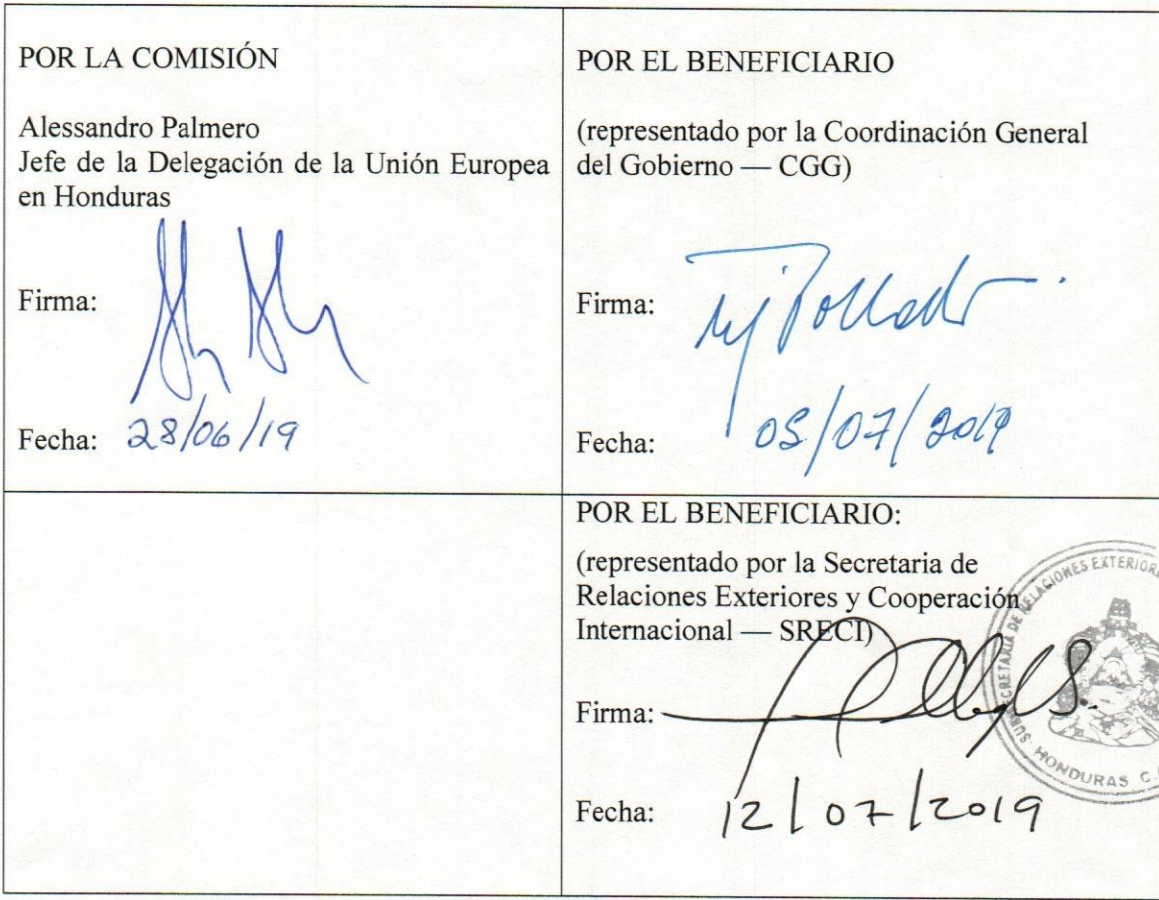 POR LA COMISIÓN
Alessandro Palmero
Jefe de la Delegación de la Unión Europea
en Honduras
Firma:
Fecha: 28/06/19
POR EL BENEFICIARIO
(representado por la Coordinación General
del Gobierno — CGG)
Firma:
Fecha: 05/07/2019
POR EL BENEFICIARIO:
(representado por la Secretaria de
Relaciones Exteriores y Cooperación
Internacional — SRECI)
Firma:
Fecha: 12/07/2019
DE RELACIONES EXTERIOR
HONDURAS C.